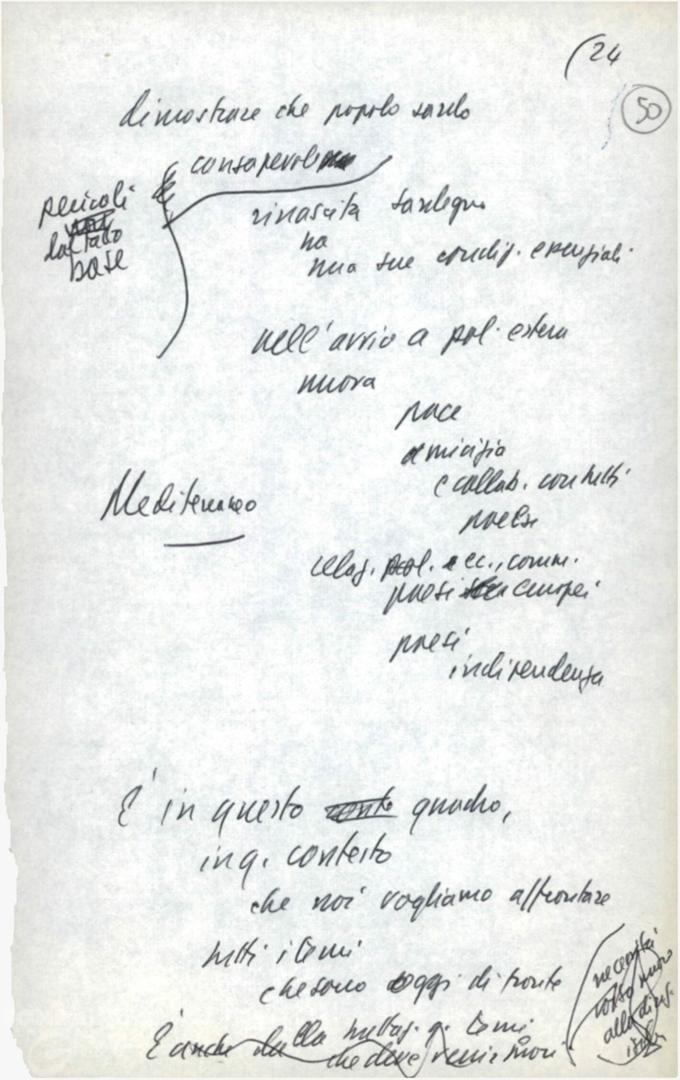 (24
50
dimostrare che popolo sardo
consapevole
pericoli
dal lato
base
rinascita Sardegna
ha
una sue condiz. essenziali
nell'avvio a pol. estera
nuova
pace
amicizia
e collab. con tutti
paesi
Mediterraneo
relaz. pol. ec., comm.
paesi europei
paesi
indipendenza
È in questo quadro,
in q. contesto
che noi vogliamo affrontare
tutti i temi
che sono oggi di fronte
necessità
nuovo
alla
È anche dalla q. temi
che deve venir fuori